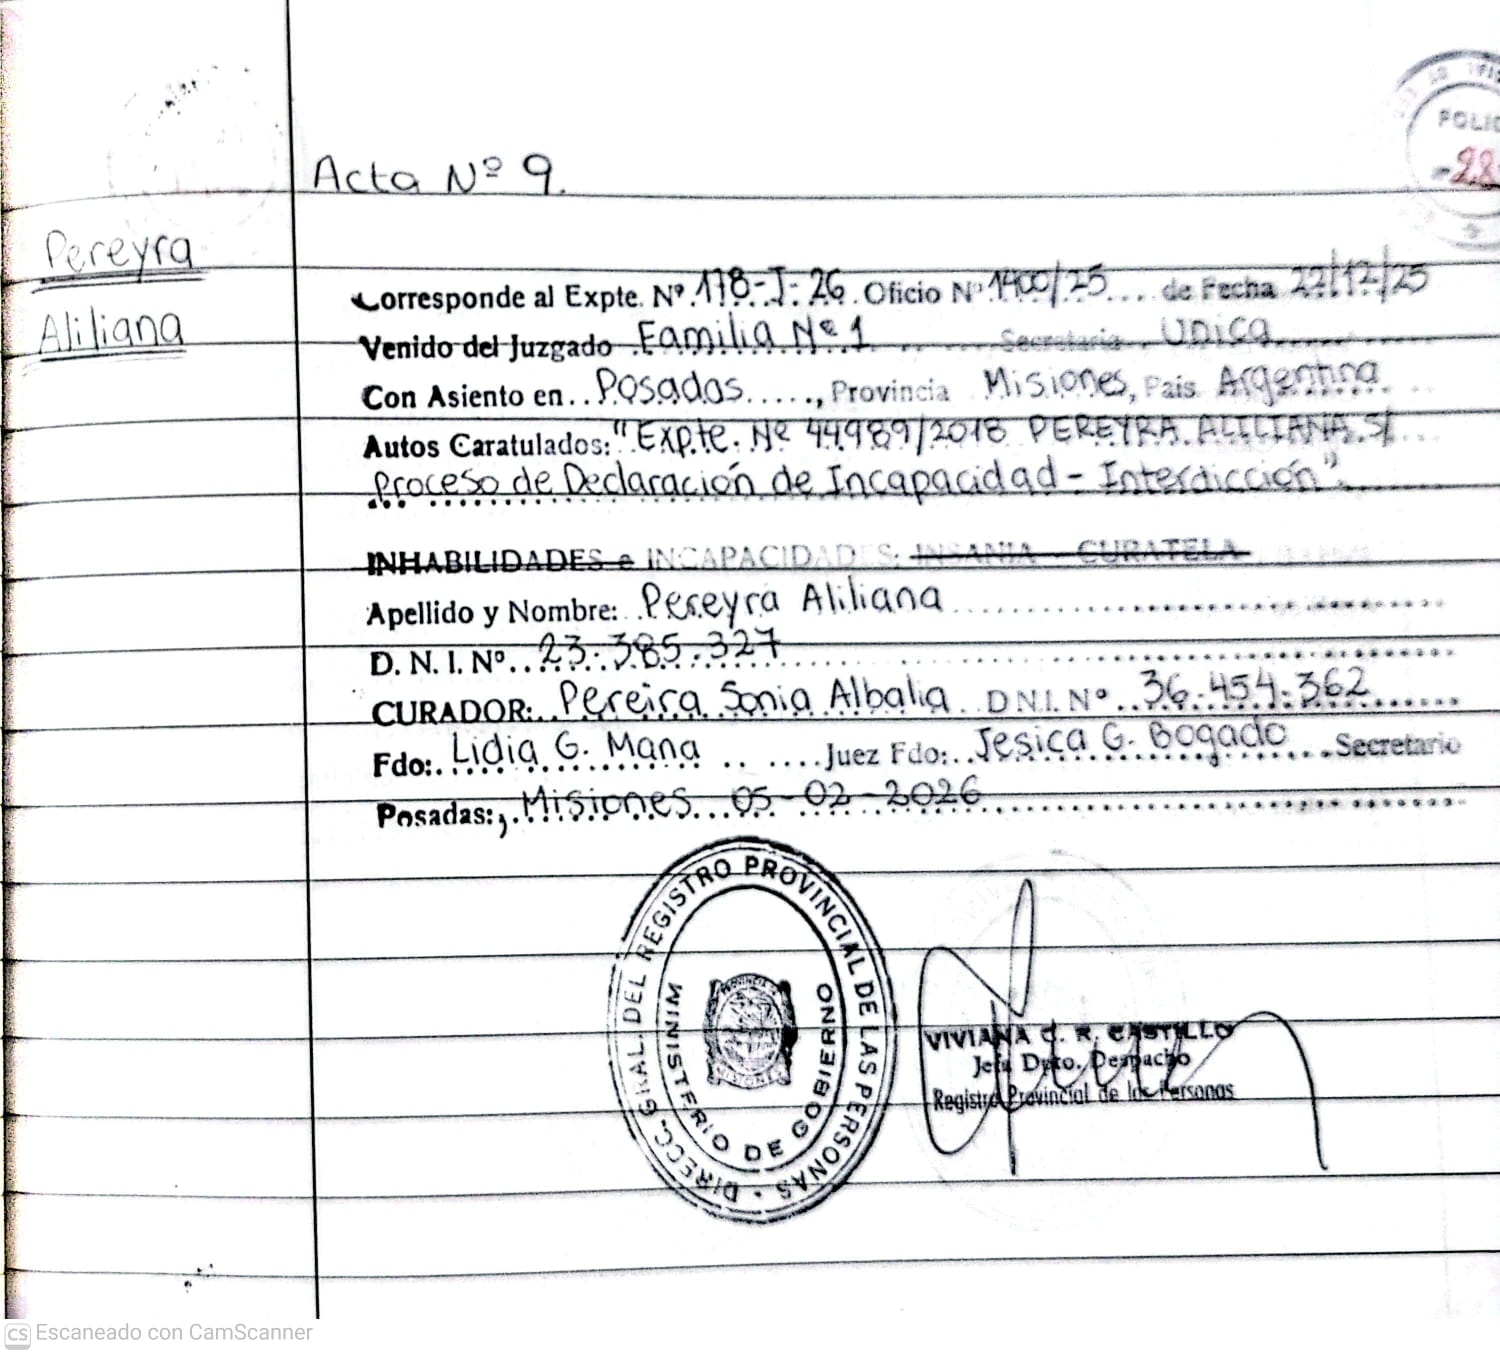 Acta Nº 9.
POLIC
-28
Pereyra
Aliliana
Corresponde al Expte. Nº 178-J-26. Oficio Nº 1400/25.... de Fecha 22/12/25
Venido del Juzgado Familia Nº 1 Secretaria Unica
Con Asiento en..Posadas....., Provincia Misiones, Pais Argentina
Autos Caratulados: "Expte. Nº 44989/2018 PEREYRA ALILIANA S/
Proceso de Declaración de Incapacidad - Interdicción".
INHABILIDADES e INCAPACIDADES: INSANIA - CURATELA
Apellido y Nombre: Pereyra Aliliana
D. N. I. Nº..23.385.327
CURADOR:..Pereira Sonia Albalia D.N.I. Nº..36.454.362
Fdo:.Lidia G. Mana .. ....Juez Fdo:..Jesica G. Bogado....Secretario
Posadas:, Misiones 05-02-2026
DIRECC. GRAL. DEL REGISTRO PROVINCIAL DE LAS PERSONAS
MINISTERIO DE GOBIERNO
MISIONES
VIVIANA C. R. CASTILLO
Jefa Dpto. Despacho
Registro Provincial de las Personas
CS Escaneado con CamScanner